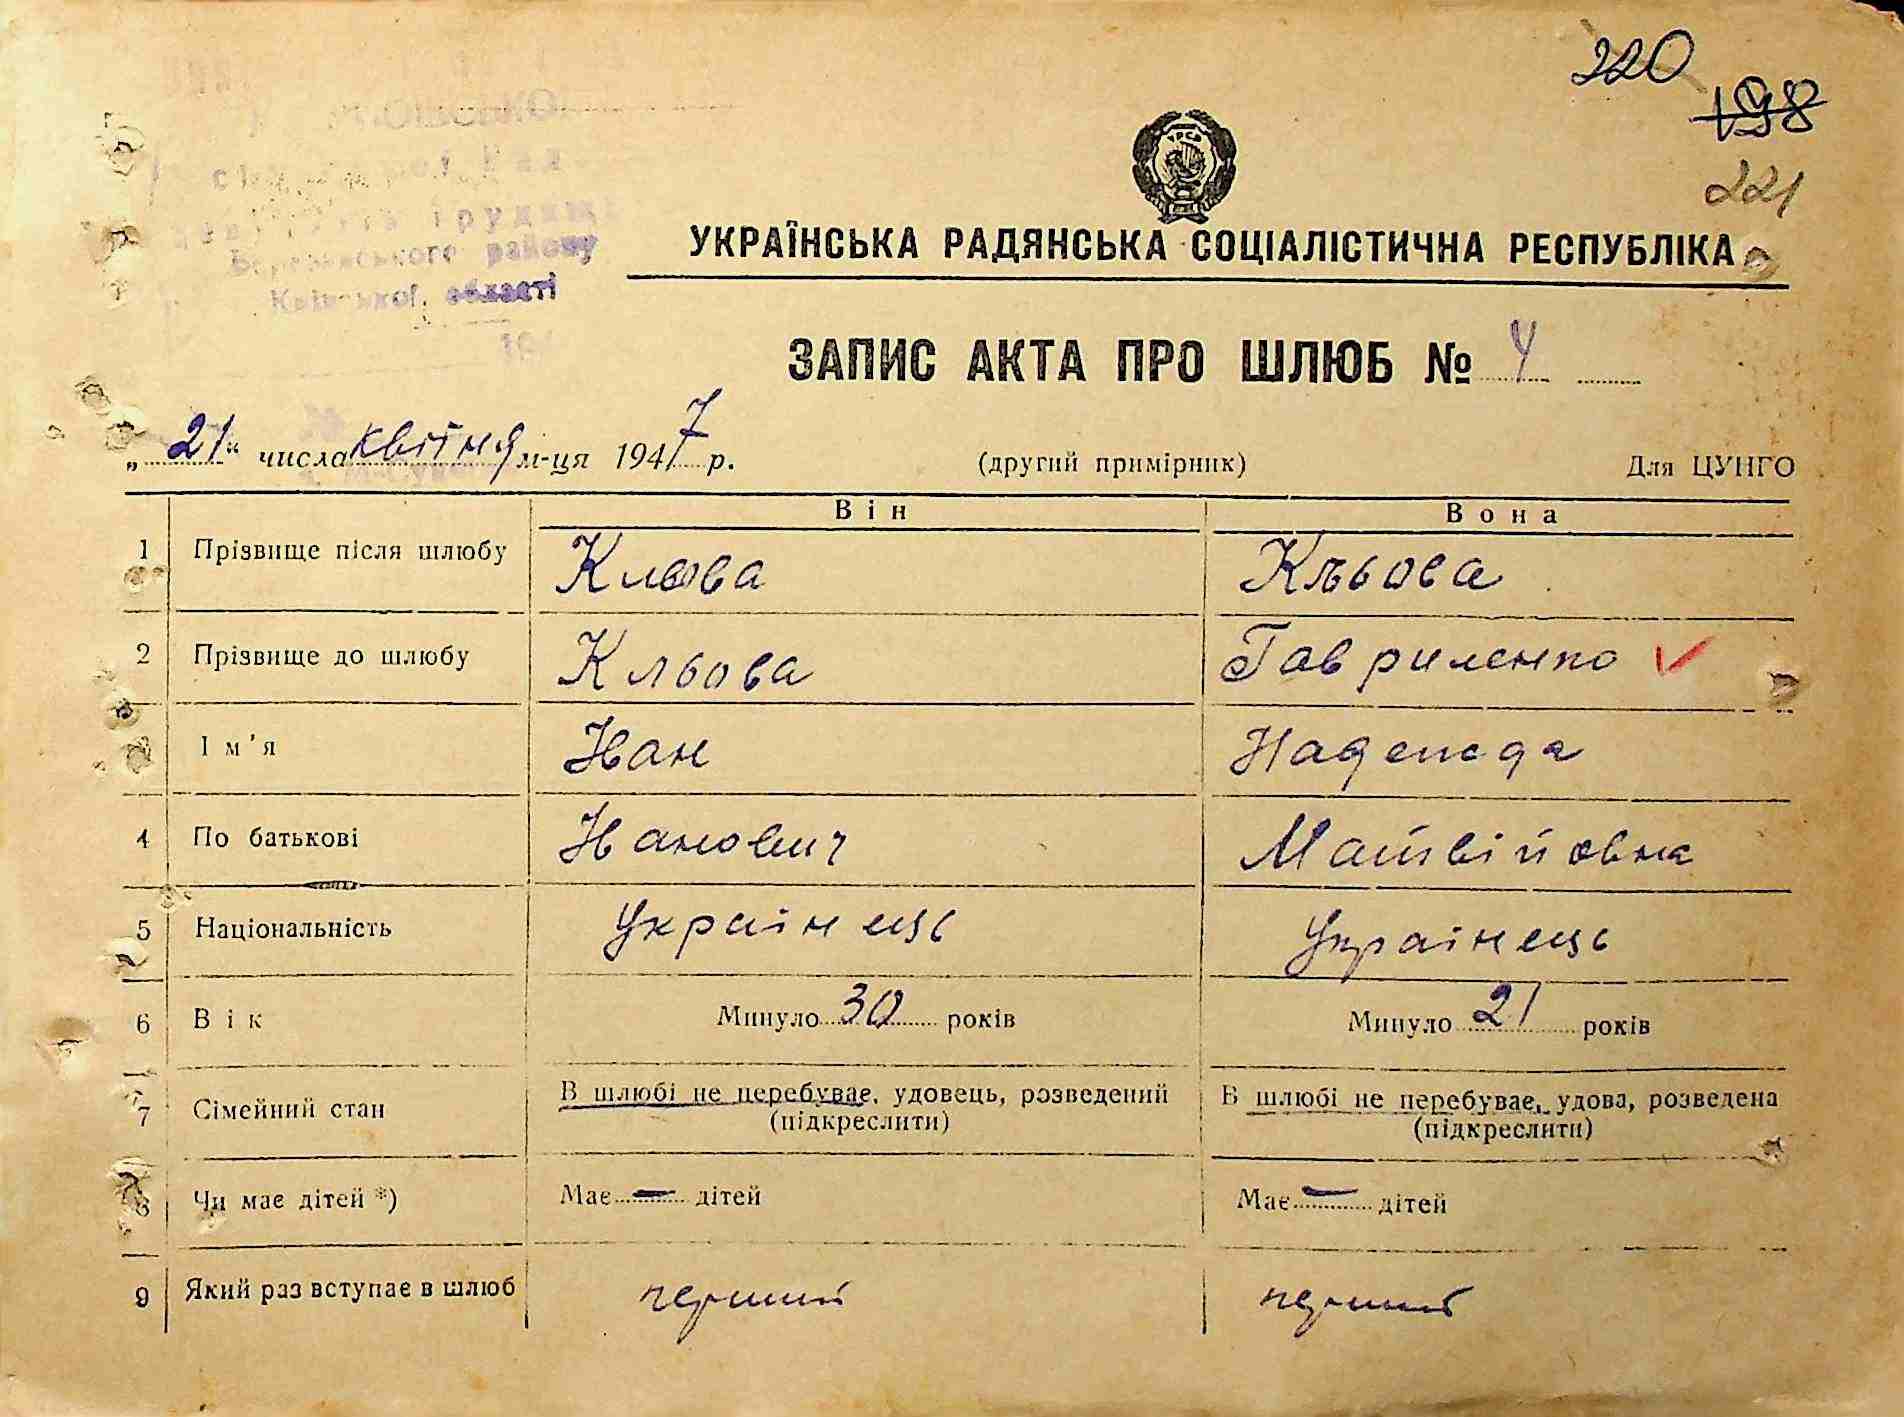 220
198
221
УРСР
УКРАЇНСЬКА РАДЯНСЬКА СОЦІАЛІСТИЧНА РЕСПУБЛІКА
районy
Київської області
194
ЗАПИС АКТА ПРО ШЛЮБ № 4
„21“ числа квітня м-ця 1947 р. (другий примірник) Для ЦУНГО
Він Вона
1 Прізвище після шлюбу Кльова Кльова
2 Прізвище до шлюбу Кльова Гавриленко
Ім'я Іван Надежда
4 По батькові Іванович Матвійовна
5 Національність Українець Українець
6 Вік Минуло 30 років Минуло 21 років
7 Сімейний стан В шлюбі не перебуває, удовець, розведений (підкреслити) В шлюбі не перебуває, удова, розведена (підкреслити)
8 Чи має дітей *) Має — дітей Має — дітей
9 Який раз вступає в шлюб перший перший